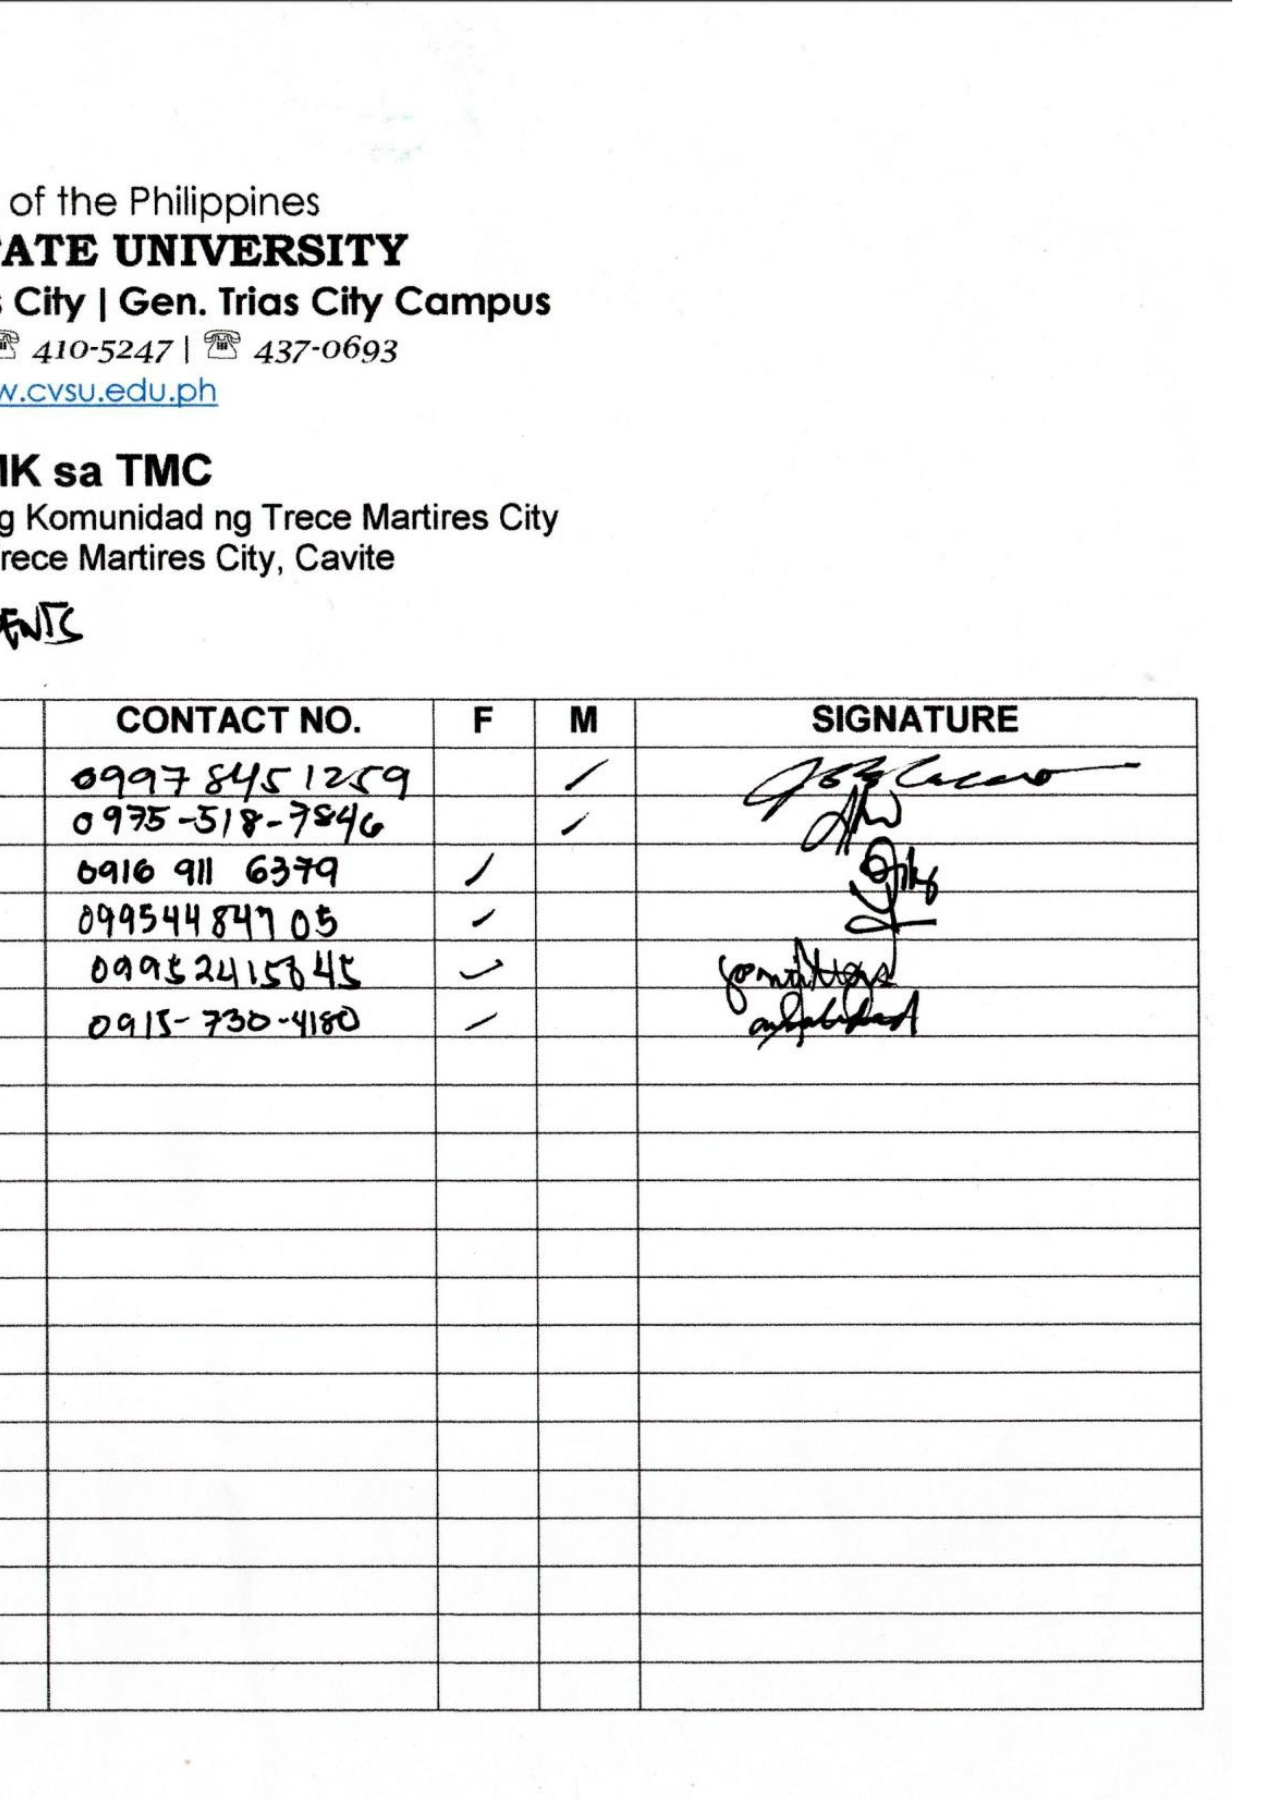 of the Philippines
ATE UNIVERSITY
s City | Gen. Trias City Campus
☏ 410-5247 | ☏ 437-0693
w.cvsu.edu.ph
IK sa TMC
g Komunidad ng Trece Martires City
rece Martires City, Cavite
ENTS
CONTACT NO. F M SIGNATURE
0997 8451259 /
0975-518-7846 /
0916 911 6379 /
09954484705 /
/
0915-730-4180 /